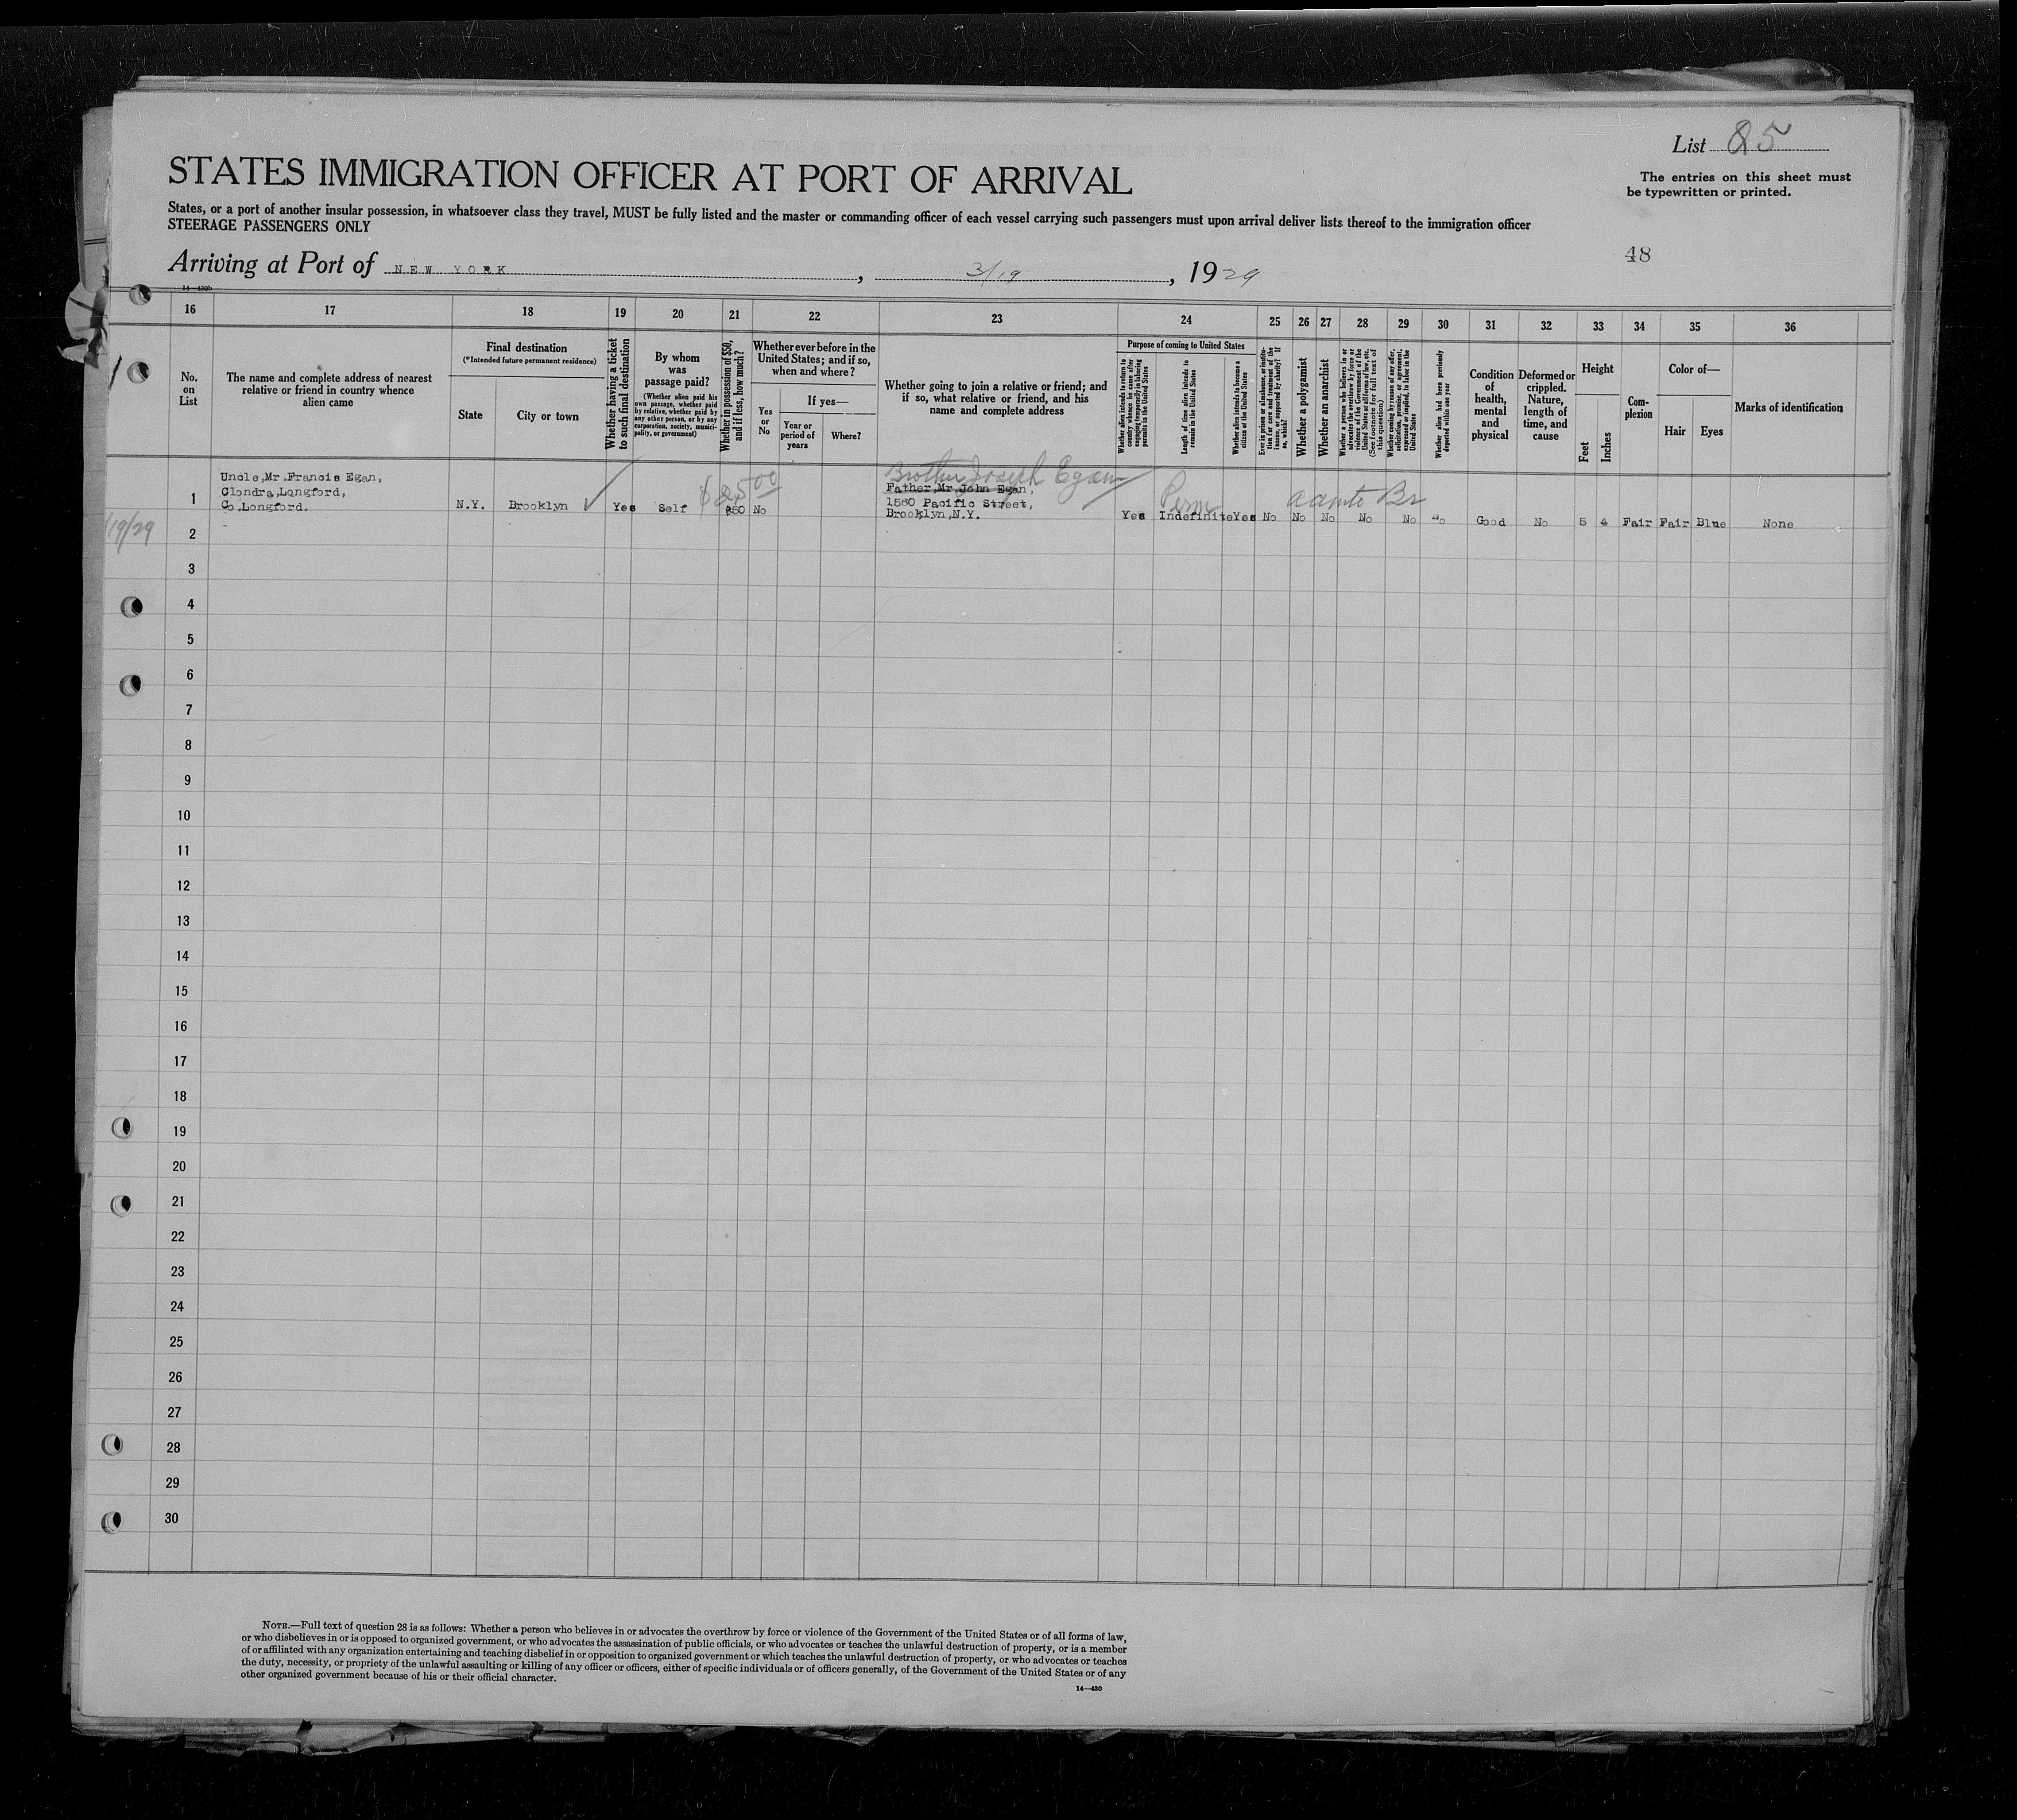 List 85
STATES IMMIGRATION OFFICER AT PORT OF ARRIVAL
The entries on this sheet must
be typewritten or printed.
States, or a port of another insular possession, in whatsoever class they travel, MUST be fully listed and the master or commanding officer of each vessel carrying such passengers must upon arrival deliver lists thereof to the immigration officer
STEERAGE PASSENGERS ONLY
48
Arriving at Port of NEW YORK, 3/19, 1929
14—430b
16 17 18 19 20 21 22 23 24 25 26 27 28 29 30 31 32 33 34 35 36
No.
on
List
The name and complete address of nearest
relative or friend in country whence
alien came
Final destination
(*Intended future permanent residence)
State
City or town
Whether having a ticket
to such final destination
By whom
was
passage paid?
(Whether alien paid his
own passage, whether paid
by relative, whether paid by
any other person, or by any
corporation, society, munici-
pality, or government)
Whether in possession of $50,
and if less, how much?
Whether ever before in the
United States; and if so,
when and where?
Yes
or
No
If yes—
Year or
period of
years
Where?
Whether going to join a relative or friend; and
if so, what relative or friend, and his
name and complete address
Purpose of coming to United States
Whether alien intends to return to
country whence he came after
engaging temporarily in laboring
pursuits in the United States
Length of time alien intends to
remain in the United States
Whether alien intends to become a
citizen of the United States
Ever in prison or almshouse, or institu-
tion for care and treatment of the
insane, or supported by charity? If
so, which?
Whether a polygamist
Whether an anarchist
Whether a person who believes in or
advocates the overthrow by force or
violence of the Government of the
United States or all forms of law, etc.
(See footnote for full text of
this question)
Whether coming by reason of any offer,
solicitation, promise, or agreement,
expressed or implied, to labor in the
United States
Whether alien had been previously
deported within one year
Condition
of
health,
mental
and
physical
Deformed or
crippled.
Nature,
length of
time, and
cause
Height
Feet
Inches
Com-
plexion
Color of—
Hair
Eyes
Marks of identification
Brother Joseph Egan
Uncle,Mr.Francis Egan,
Clondra,Longford,
Co.Longford.
1 N.Y. Brooklyn Yes Self $25 00 $50 No
Father,Mr.John Egan,
1580 Pacific Street,
Brooklyn,N.Y.
Perm
Yes Indefinite Yes No No No No No No Good No 5 4 Fair Fair Blue None
19/29
2
3
4
5
6
7
8
9
10
11
12
13
14
15
16
17
18
19
20
21
22
23
24
25
26
27
28
29
30
NOTE.—Full text of question 28 is as follows: Whether a person who believes in or advocates the overthrow by force or violence of the Government of the United States or of all forms of law,
or who disbelieves in or is opposed to organized government, or who advocates the assassination of public officials, or who advocates or teaches the unlawful destruction of property, or is a member
of or affiliated with any organization entertaining and teaching disbelief in or opposition to organized government or which teaches the unlawful destruction of property, or who advocates or teaches
the duty, necessity, or propriety of the unlawful assaulting or killing of any officer or officers, either of specific individuals or of officers generally, of the Government of the United States or of any
other organized government because of his or their official character.
14—430